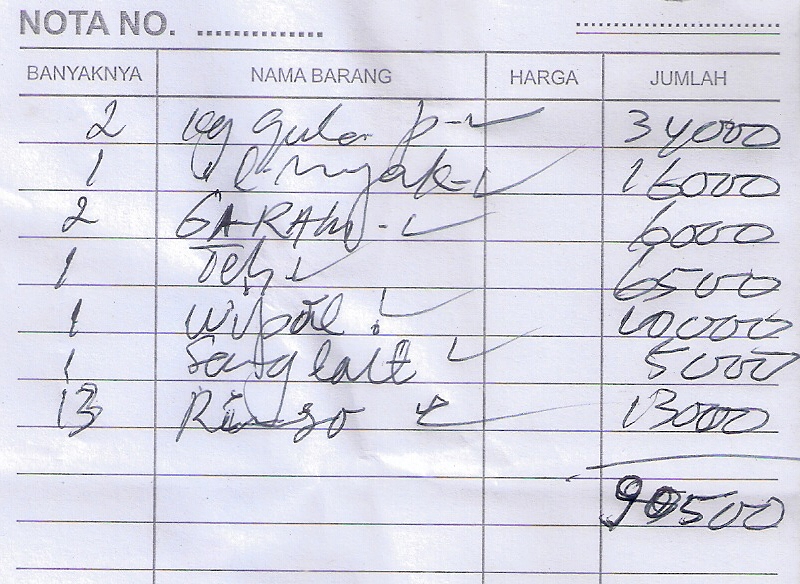 NOTA NO. ..................
BANYAKNYA NAMA BARANG HARGA JUMLAH
2 kg gula p - 34000
1 minyak - 16000
2 GARAM - 6000
1 Teh 6500
1 wipol 10000
1 Sunglait 5000
13 Rinso 13000
90500